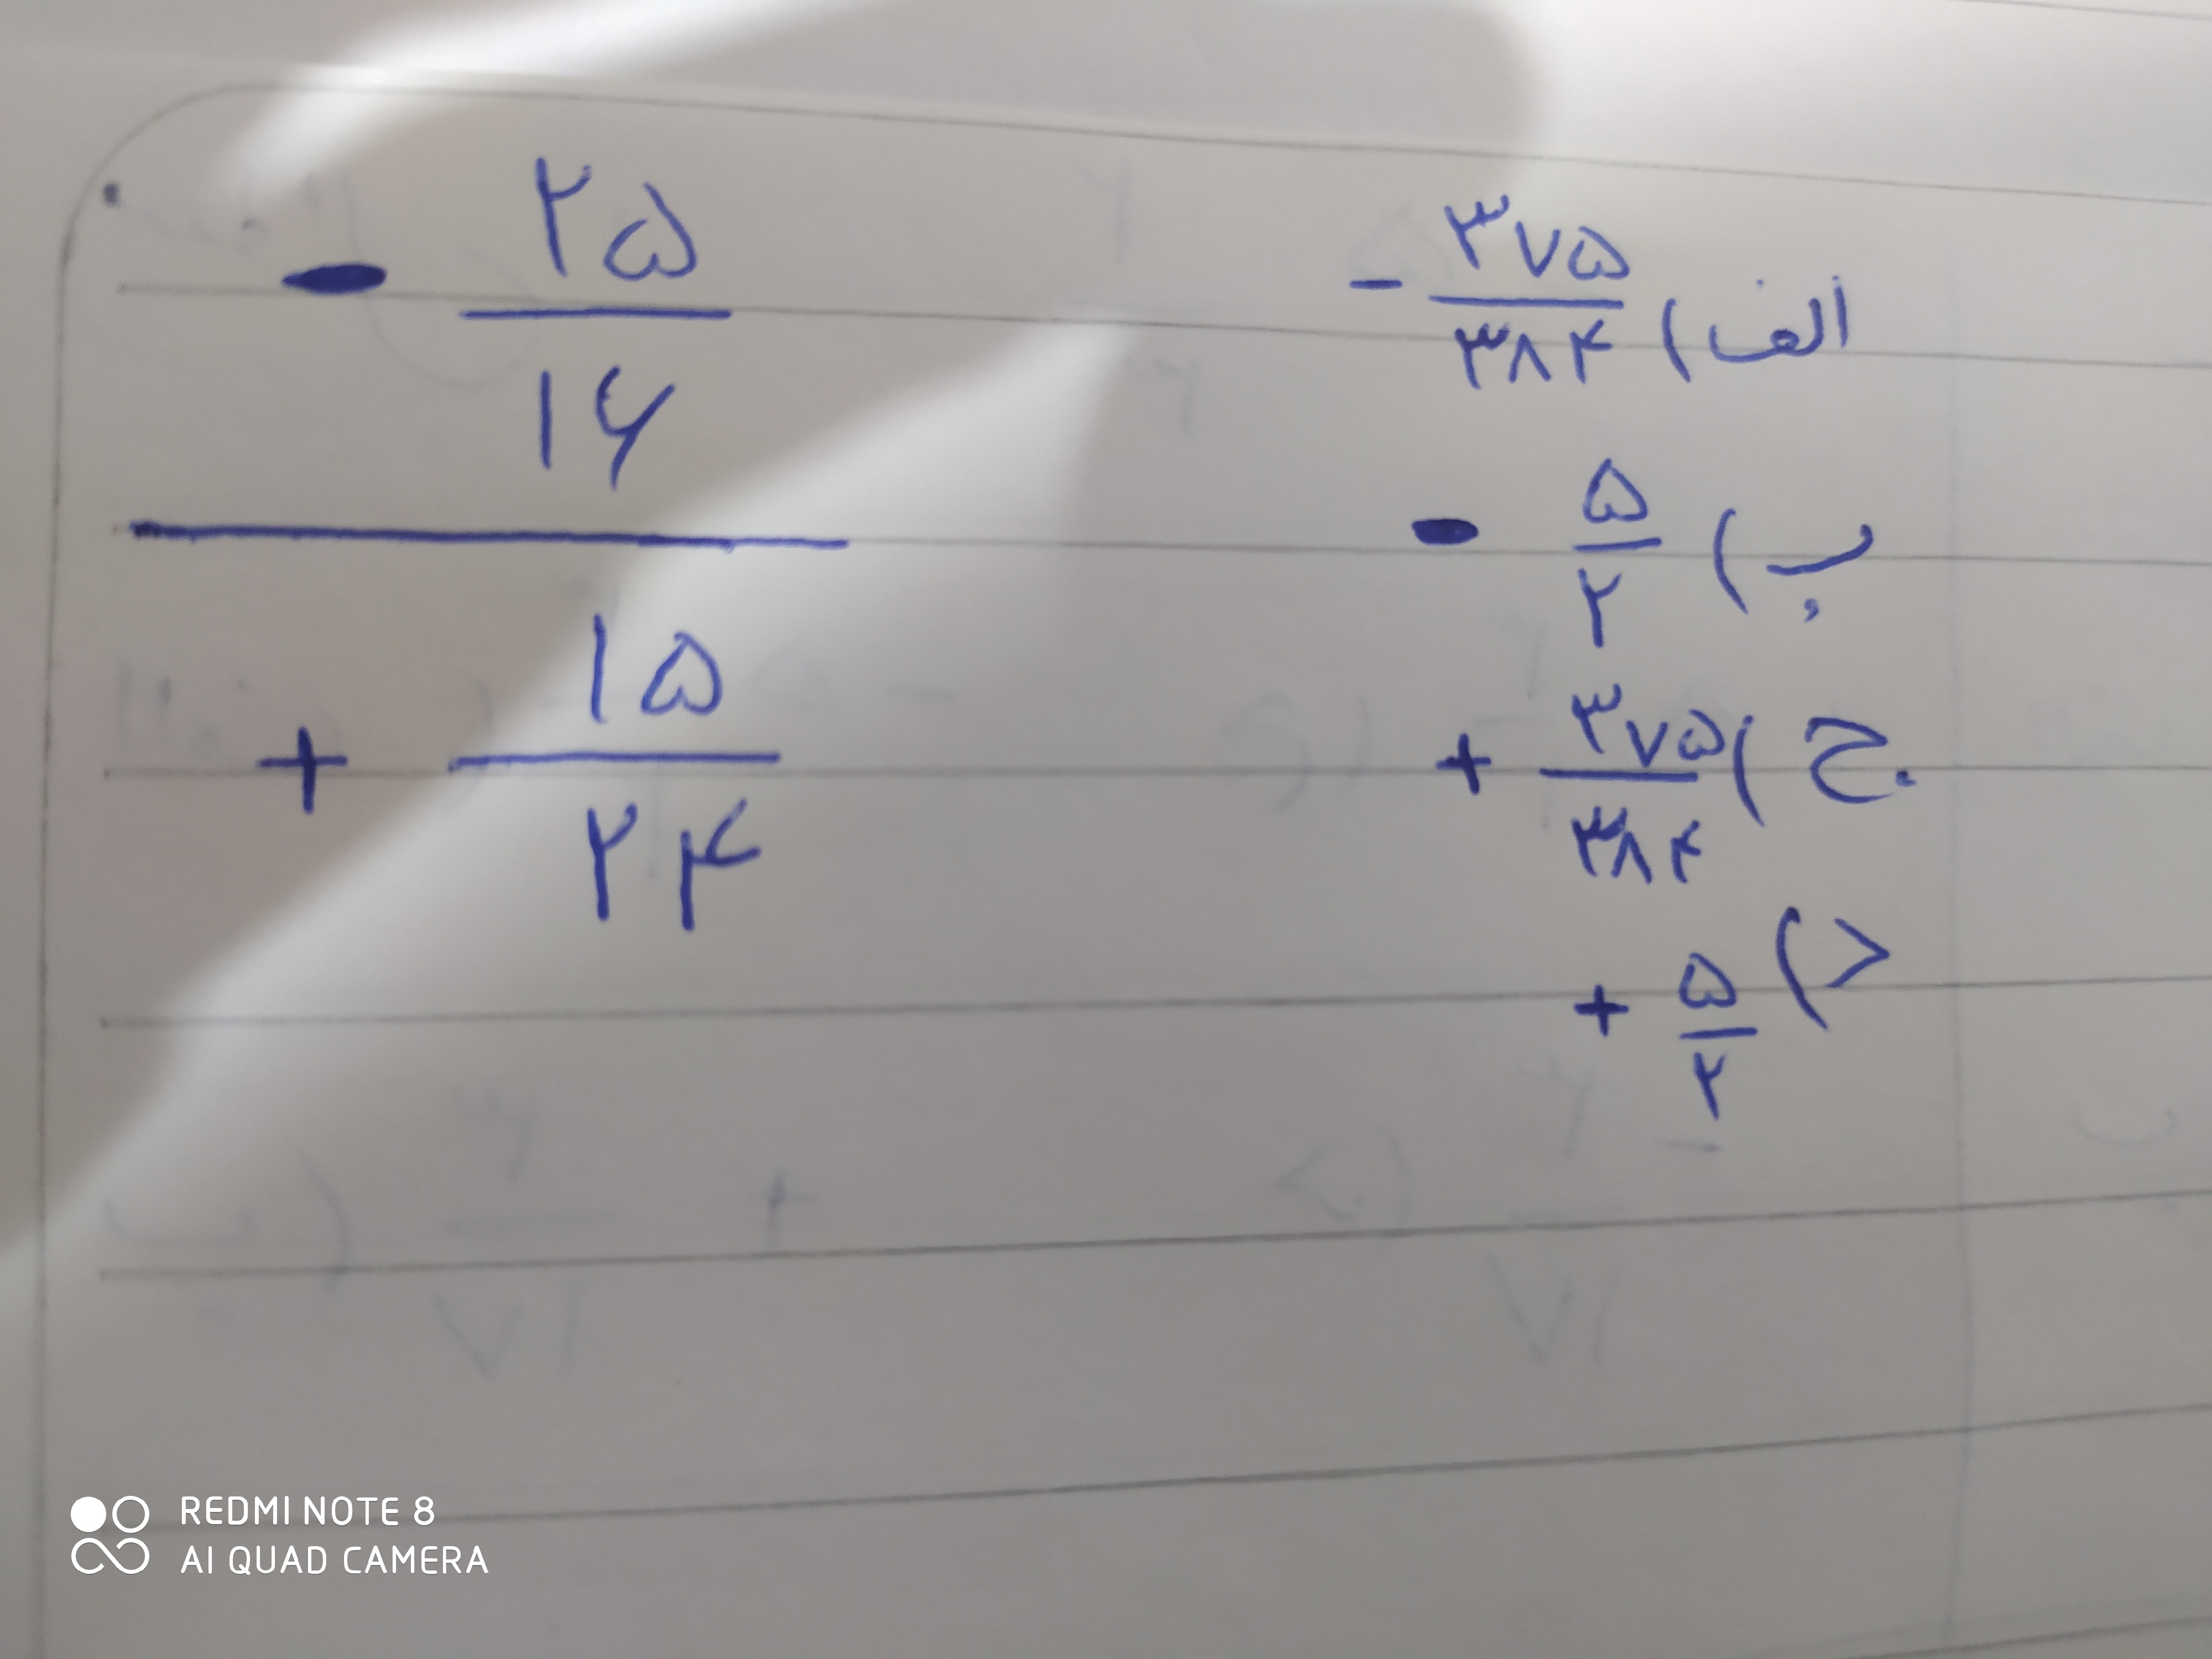 - ۲۵/۱۶
+ ۱۵/۲۴
الف) - ۳۷۵/۳۸۴
ب) - ۵/۲
ج) + ۳۷۵/۳۸۴
د) + ۵/۲
REDMI NOTE 8
AI QUAD CAMERA